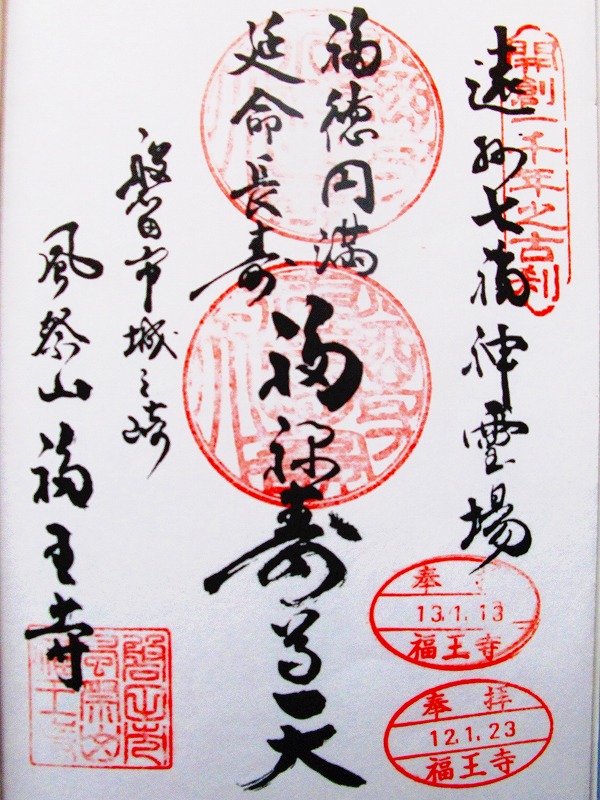 開創一千年之古刹
遠州七福神霊場
福徳円満
延命長寿
福禄寿尊天
磐田市城之崎
風祭山福王寺
奉
13.1.13
福王寺
奉拝
12.1.23
福王寺